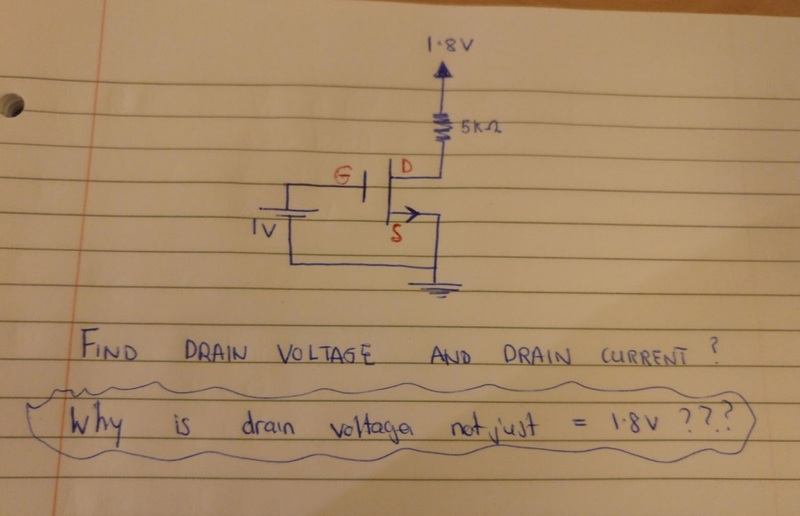 1.8V
5kΩ
G
D
1V
S
FIND DRAIN VOLTAGE AND DRAIN CURRENT?
Why is drain voltage not just = 1.8V ???